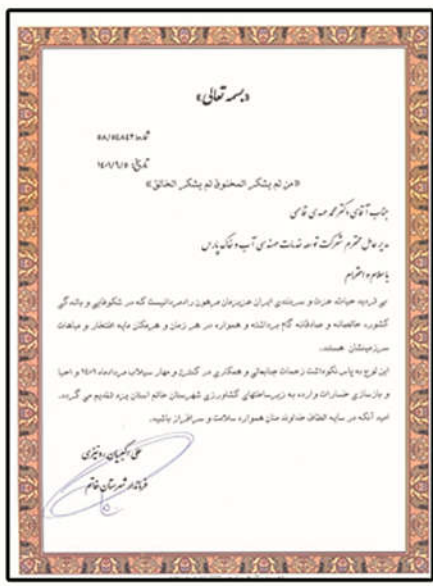 «بسمه تعالی»
شماره: ۵۸/۵۴۸۴۲
تاریخ: ۱۴۰۱/۹/۵
«من لم یشکر المخلوق لم یشکر الخالق»
جناب آقای دکتر محمد مهدی قاسمی
مدیر عامل محترم شرکت توسعه خدمات مهندسی آب و خاک پارس
با سلام و احترام
بی تردید حیات، عزت و سربلندی ایران عزیزمان مرهون رادمردانیست که در شکوفایی و بالندگی
کشور، خالصانه و صادقانه گام برداشته و همواره در هر زمان و هر مکان مایه افتخار و مباهات
سرزمینشان هستند.
این لوح به پاس نکوداشت زحمات جنابعالی و همکاری در کنترل و مهار سیلاب مردادماه ۱۴۰۱ و احیا
و بازسازی خسارات وارده به زیرساختهای کشاورزی شهرستان خاتم استان یزد تقدیم می گردد.
امید آنکه در سایه الطاف خداوند منان همواره سلامت و سرافراز باشید.
علی اکبریان
فرماندار شهرستان خاتم